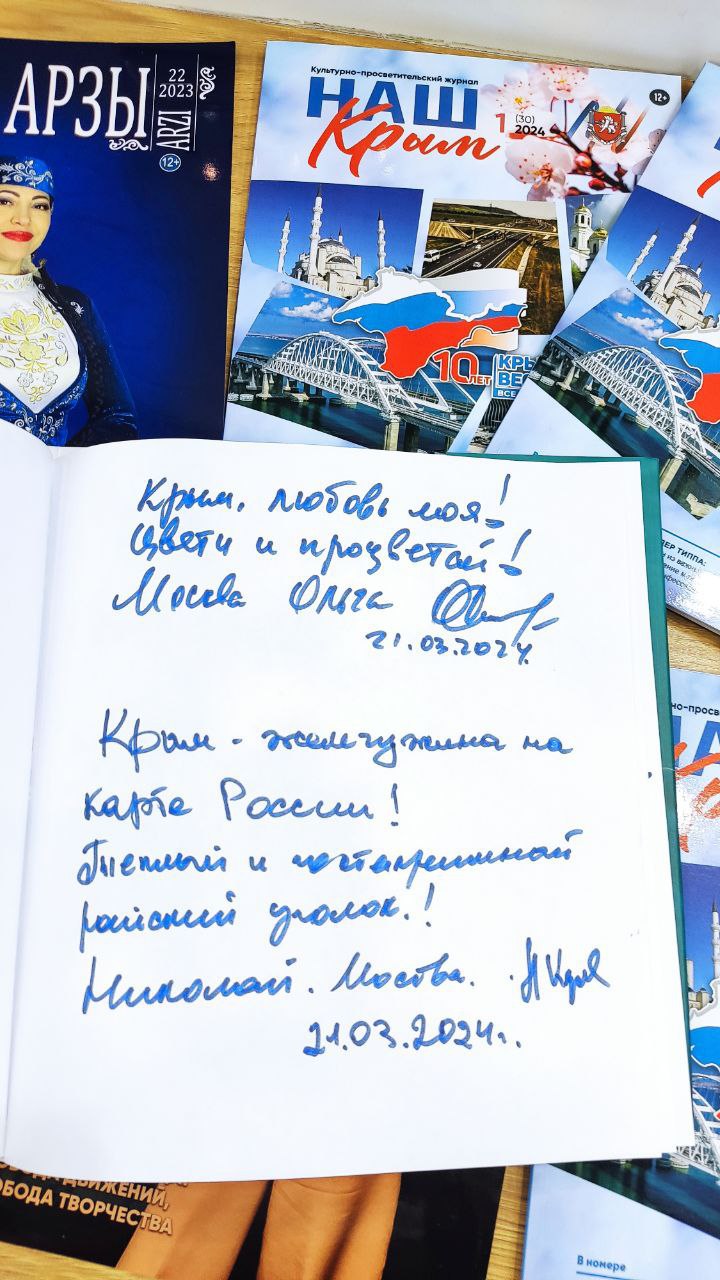 АРЗЫ
22
2023
ARZI
12+
Культурно-просветительский журнал
НАШ
Крым
1 (30)
2024
12+
10 ЛЕТ
Крым, любовь моя!
Цвети и процветай!
Москва Ольга
21.03.2024г.
Крым - жемчужина на
карте России!
Теплый и гостеприимный
райский уголок.!
Николай. Москва.
21.03.2024г.
ТИППА:
ДВИЖЕНИЙ,
СВОБОДА ТВОРЧЕСТВА
В номере